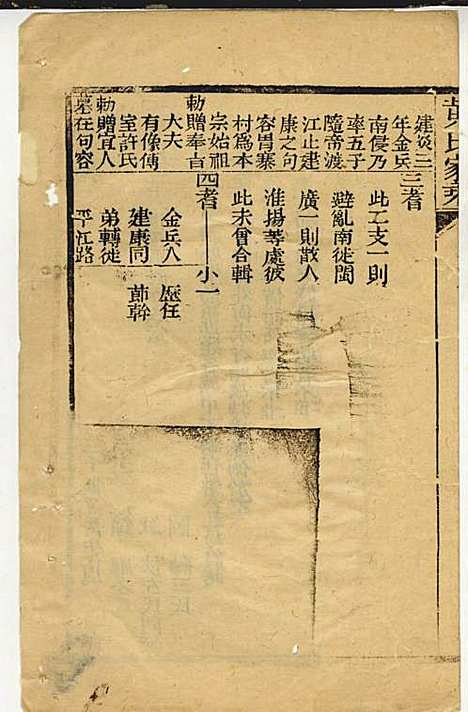 黃氏家乘
建炎三
年金兵
南侵乃
率五子
隨帝渡
江止建
康之句
容胄寨
村為本
宗始祖
勅贈奉直
大夫
有像傳
室許氏
勅贈宜人
墓在句容
三耆
此二支一則
避亂南徙閩
廣一則散人
淮揚等處彼
此未曾合輯
四耆
小一
金兵入
建康同
弟轉徙
平江路
歷任
節幹